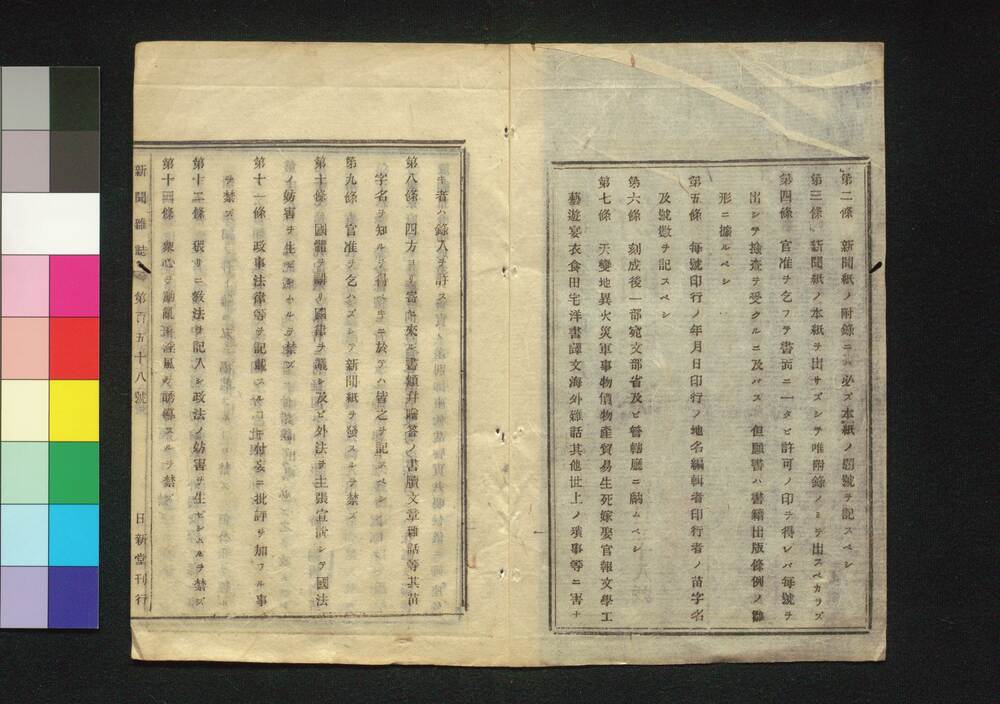 第二條　新聞紙ノ附錄ニハ必ズ本紙ノ題號ヲ記スベシ
第三條　新聞紙ノ本紙ヲ出サズシテ唯附錄ノミヲ出スベカラズ
第四條　官准ヲ乞フテ書面ニ一タビ許可ノ印ヲ得レバ每號ヲ
出シテ撿査ヲ受クルニ及バス但願書ハ書籍出版條例ノ雛
形ニ據ルベシ
第五條　每號印行ノ年月日印行ノ地名編輯者印行者ノ苗字名
及號數ヲ記スベシ
第六條　刻成後一部宛文部省及ヒ管轄廳ニ納ムベシ
第七條　天變地異火災軍事物價物產貿易生死嫁娶官報文學工
藝遊宴衣食田宅洋書譯文海外雜話其他世上ノ瑣事等ニ害ナ
キ者ハ錄入ヲ許ス
第八條　四方ヨリ寄セ來ル書類幷贈答ノ書牘文章雜話等其苗
字名ヲ知ルヲ得ベキニ於テハ皆之ヲ記スベシ
第九條　官准ヲ乞ハズシテ新聞紙ヲ發スルヲ禁ズ
第十條　國體ヲ 國律ヲ議シ及ビ外法ヲ主張宣說シテ國法
ノ妨害ヲ生ゼシムルヲ禁ズ
第十一條　政事法律等ヲ記載スルコトニ付妄ニ批評ヲ加フル事
ヲ禁ズ
第十二條　猥リニ敎法ヲ記入シ政法ノ妨害ヲ生ゼシムルヲ禁ズ
第十四條　衆心ヲ 亂シ淫風ヲ誘導スルヲ禁ズ
新聞雜誌　第百五十八號　日新堂刊行